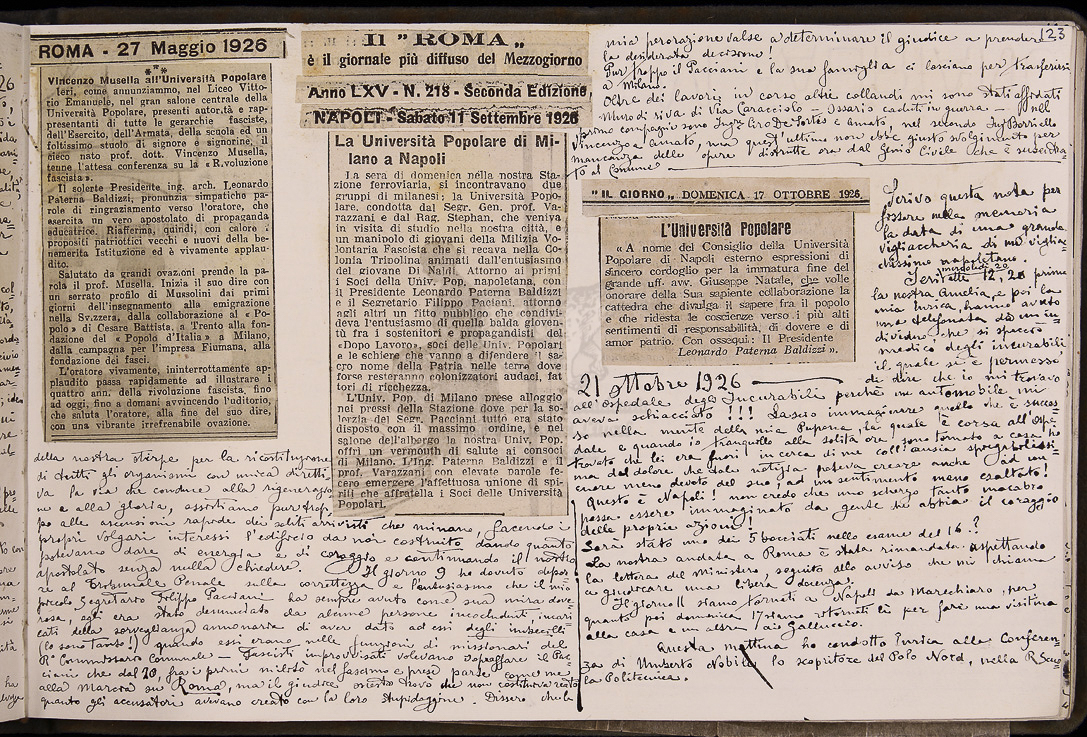 123
ROMA - 27 Maggio 1926
***
Vincenzo Musella all'Università Popolare
Ieri, come annunziammo, nel Liceo Vitto-
rio Emanuele, nel gran salone centrale della
Università Popolare, presenti autorità e rap-
presentanti di tutte le gerarchie fasciste,
dell'Esercito, dell'Armata, della scuola ed un
foltissimo stuolo di signore e signorine, il
cieco nato prof. dott. Vincenzo Musella,
tenne l'attesa conferenza su la « Rivoluzione
fascista ».
Il solerte Presidente ing. arch. Leonardo
Paterna Baldizzi, pronunzia simpatiche pa-
role di ringraziamento verso l'oratore, che
esercita un vero apostolato di propaganda
educatrice. Riafferma, quindi, con calore i
propositi patriottici vecchi e nuovi della be-
nemerita Istituzione ed è vivamente applau-
dito.
Salutato da grandi ovazioni prende la pa-
rola il prof. Musella. Inizia il suo dire con
un serrato profilo di Mussolini dai primi
giorni dell'insegnamento alla emigrazione
nella Svizzera, dalla collaborazione al « Po-
polo » di Cesare Battisti, a Trento alla fon-
dazione del « Popolo d'Italia » a Milano,
dalla campagna per l'impresa Fiumana, alla
fondazione di fasci.
L'oratore vivamente, ininterrottamente ap-
plaudito passa rapidamente ad illustrare i
quattro anni della rivoluzione fascista, fino
ad oggi, fino a domani avvincendo l'uditorio,
che saluta l'oratore, alla fine del suo dire,
con una vibrante irrefrenabile ovazione.
della nostra stirpe per la ricostituzione
di tutti gli organismi con unica diretti
va la via che conduce alla rigenerazio
ne e alla gloria, assistiamo purtrop
po alle ascensioni rapide dei soliti arrivisti che minano, facendo i
propri volgari interessi l'edificio da noi costruito, dando quanto
potevamo dare di energia e di coraggio e continuando il nostro
apostolato senza nulla chiedere.
Il giorno 9 ho dovuto depor
re al Tribunale Penale sulla correttezza e l'entusiasmo che il mio
piccolo Segretario Filippo Pacciani ha sempre avuto come sua mira dove=
rosa, egli era stato denunciato da alcune persone inconcludenti, incari
cati della sorveglianza annonaria di avere dato ad essi degli imbecilli
(lo sono tanto!) quando essi erano nelle funzioni di missionari del
R° Commissario Comunale = Fascisti improvvisati volevano sopraffare il Pac=
ciani che dal 20, fra i primi milito nel fascio e prese parte come me
alla marcia su Roma, ma il giudice onesto trovo che non costituiva reato
quanto gli accusatori avevano creato con la loro stupidaggine. Dissero che la
Il "ROMA„
è il giornale più diffuso del Mezzogiorno
Anno LXV - N. 218 - Seconda Edizione
NAPOLI - Sabato 11 Settembre 1926
La Università Popolare di Mi-
lano a Napoli
La sera di domenica nella nostra Sta-
zione ferroviaria, si incontravano due
gruppi di milanesi: la Università Popo-
lare, condotta dal Segr. Gen. prof. Va-
razzani e dal Rag. Stephan, che veniva
in visita di studio nella nostra città, e
un manipolo di giovani della Milizia Vo-
lontaria Fascista che si recava nella Co-
lonia Tripolina animati dall'entusiasmo
del giovane Di Naldi. Attorno ai primi
i Soci della Univ. Pop. napoletana, con
il Presidente Leonardo Paterna Baldizzi
e il Segretario Filippo Paciani, attorno
agli altri un fitto pubblico che condivi-
deva l'entusiasmo di quella balda gioven-
tù fra i sostenitori e propagandisti del
«Dopo Lavoro», soci delle Univ. Popolari
e le schiere che vanno a difendere il sa-
cro nome della Patria nelle terre dove
forse resteranno colonizzatori audaci, fat-
tori di ricchezza.
L'Univ. Pop. di Milano prese alloggio
nei pressi della Stazione dove per la so-
lerzia del Segr. Pacciani tutto era stato
disposto con il massimo ordine, e nel
salone dell'albergo la nostra Univ. Pop.
offrì un vermouth di salute ai consoci
di Milano. L'Ing. Paterna Baldizzi e il
prof. Varazzani con elevate parole fe-
cero emergere l'affettuosa unione di spi-
riti che affratella i Soci delle Università
Popolari.
mia perorazione valse a determinare il giudice a prendere
la desiderata decisione!
Pur troppo il Pacciani e la sua famiglia ci lasciano per trasferirsi
a Milano.
Oltre dei lavori in corso altre collaudi mi sono stati affidati
Muro di riva di Via Caracciolo - Ossario caduti in guerra - nel
primo compagni sono Ing.ri Ciro De Fortis e Amato, nel secondo Ing. Borriello
Vincenzo e Amato, ma quest'ultimo non ebbe giusto svolgimento per
mancanza delle opere distrutte ora dal Genio Civile che è subentra
to al Comune
"IL GIORNO„ DOMENICA 17 OTTOBRE 1926
L'Università Popolare
« A nome del Consiglio della Università
Popolare di Napoli esterno espressioni di
sincero cordoglio per la immatura fine del
grande uff. avv. Giuseppe Natale, che volle
onorare della Sua sapiente collaborazione la
cattedra che divulga il sapere fra il popolo
e che ridesta le coscienze verso i più alti
sentimenti di responsabilità, di dovere e di
amor patrio. Con ossequi: Il Presidente
Leonardo Paterna Baldizzi ».
Scrivo questa nota per
fissare nella memoria
la data di una grande
vigliaccheria di un viglia=
chissimo napoletano.
Ieri alle 12,20 prima
la nostra Amelia, e poi la
mia Pupona, hanno avuto
una telefonata da un in
dividuo, che si spacciò
medico degli incurabili
il quale si è permesso
di dire che io mi trovavo
21 ottobre 1926
all'ospedale degli Incurabili perchè un automobile mi
aveva schiacciato!!! Lascio immaginare quello che è succes
so nella mente della mia Pupona, la quale è corsa all'Ospe
dale e quando io tranquillo alla solita ora sono tornato a casa ho
trovato che lei era fuori in cerca di me coll'ansia spiegabilissi
ma del dolore che tale notizia poteva creare anche ad un
cuore meno devoto del suo, ad un sentimento meno esaltato!
Questo è Napoli! non credo che uno scherzo tanto macabro
possa essere immaginato da gente che abbia il coraggio
delle proprie azioni!
Sarà stato uno dei 5 bocciati nello esame del 16?
La nostra andata a Roma è stata rimandata aspettando
la lettera del Ministero, seguito allo avviso che mi chiama
a giudicare una libera docenza.
Il giorno 11 siamo tornati a Napoli da Marechiaro, per
quanto poi domenica 17 siamo ritornati lì per fare una visitina
alla casa e un altra a zio Galluccio.
Questa mattina ho condotto Enrica alla Conferen
za di Umberto Nobile, lo scopritore del Polo Nord, nella R. Scuo
la Politecnica.